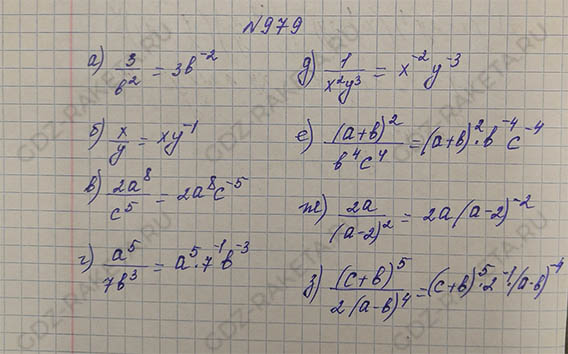 №979
а) 3/b² = 3b⁻²
б) x/y = xy⁻¹
в) 2a⁸/c⁵ = 2a⁸c⁻⁵
г) a⁵/7b³ = a⁵·7⁻¹b⁻³
д) 1/x²y³ = x⁻²y⁻³
е) (a+b)²/b⁴c⁴ = (a+b)²·b⁻⁴c⁻⁴
ж) 2a/(a-2)² = 2a(a-2)⁻²
з) (c+b)⁵/2(a-b)⁴ = (c+b)⁵·2⁻¹·(a-b)⁻⁴
GDZ-RAKETA.RU